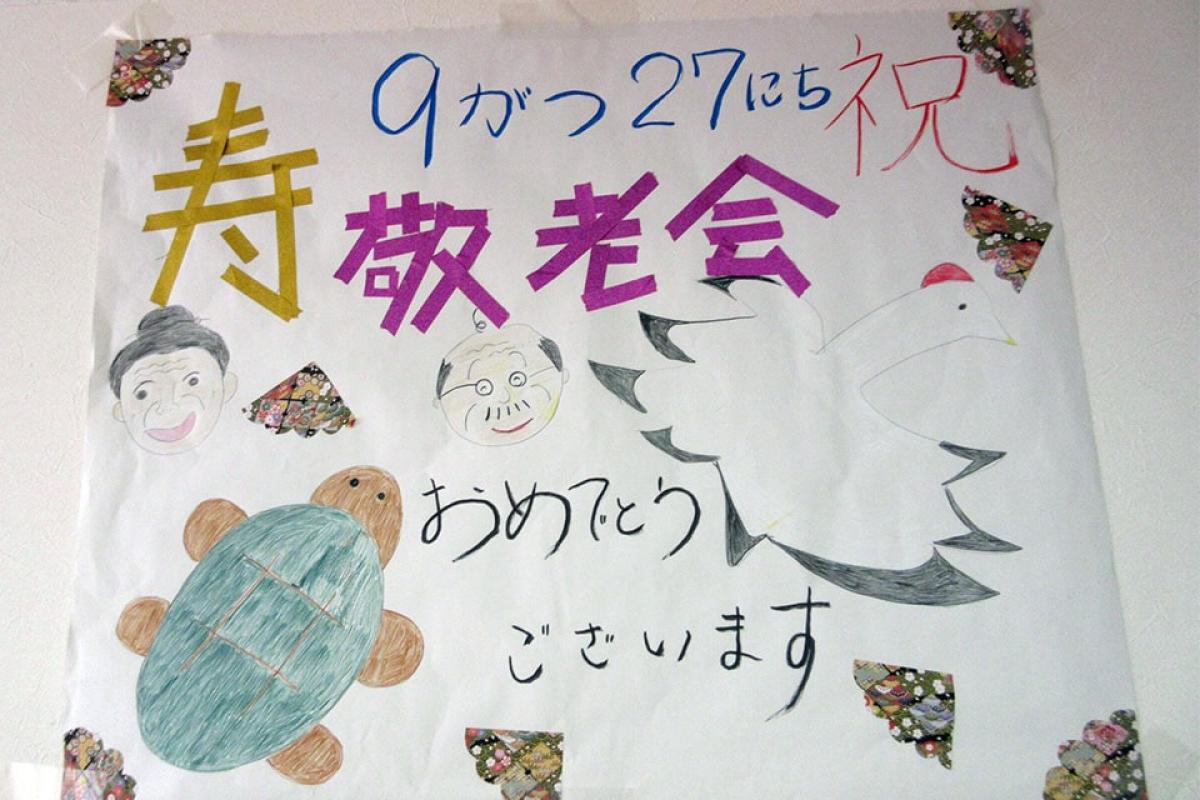 9がつ27にち祝
寿敬老会
おめでとう
ございます